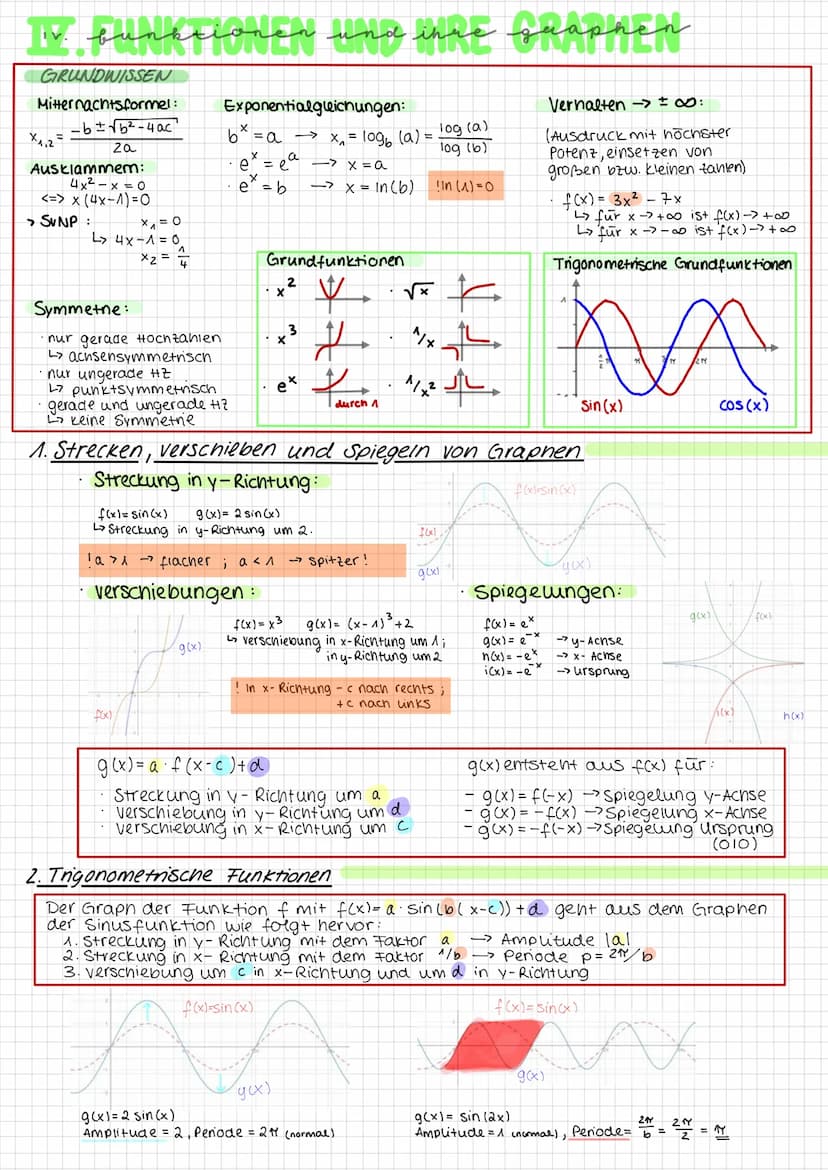 IV. FUNKTIONEN UND IHRE GRAPHEN
iv. funktionen und ihre graphen
GRUNDWISSEN
Mitternachtsformel:
x₁,₂ = (-b ± √(b² - 4ac)) / 2a
Ausklammern:
4x² - x = 0
<=> x (4x-1)=0
> SVNP : x₁ = 0
↳ 4x - 1 = 0
x₂ = 1/4
Symmetrie:
· nur gerade Hochzahlen
↳ achsensymmetrisch
· nur ungerade HZ
↳ punktsymmetrisch
· gerade und ungerade HZ
↳ keine Symmetrie
Exponentialgleichungen:
bˣ = a → x₁ = log_b (a) = log (a) / log (b)
· eˣ = eᵃ → x = a
· eˣ = b → x = ln(b) !ln (1) = 0
Verhalten → ± ∞ :
(Ausdruck mit höchster
Potenz, einsetzen von
großen bzw. kleinen zahlen)
· f(x) = 3x² - 7x
↳ für x → +∞ ist f(x) → +∞
↳ für x → -∞ ist f(x) → +∞
Grundfunktionen
· x² · √x
· x³ · 1/x
· eˣ durch 1 · 1/x²
Trigonometrische Grundfunktionen
1
π/2 π 3/2 π 2π
-1
sin(x) cos(x)
1. Strecken, verschieben und Spiegeln von Graphen
· Streckung in y-Richtung:
f(x) = sin(x) g(x) = 2 sin(x)
↳ Streckung in y-Richtung um 2.
! a > 1 → flacher ; a < 1 → spitzer !
f(x)=sin(x)
f(x)
g(x)
g(x)
· Verschiebungen :
f(x) = x³ g(x) = (x-1)³ + 2
↳ Verschiebung in x-Richtung um 1 ;
in y-Richtung um 2
! In x-Richtung - c nach rechts ;
+ c nach links
g(x)
f(x)
· Spiegelungen:
f(x) = eˣ
g(x) = e⁻ˣ → y-Achse
h(x) = -eˣ → x-Achse
i(x) = -e⁻ˣ → Ursprung
g(x) f(x)
i(x) h(x)
g(x) = a · f (x-c) + d
· Streckung in y-Richtung um a
· Verschiebung in y-Richtung um d
· Verschiebung in x-Richtung um c
g(x) entsteht aus f(x) für:
- g(x) = f(-x) → Spiegelung y-Achse
- g(x) = -f(x) → Spiegelung x-Achse
- g(x) = -f(-x) → Spiegelung Ursprung
(0|0)
2. Trigonometrische Funktionen
Der Graph der Funktion f mit f(x) = a · sin (b( x-c)) + d geht aus dem Graphen
der Sinusfunktion wie folgt hervor:
1. Streckung in y-Richtung mit dem Faktor a → Amplitude |a|
2. Streckung in x-Richtung mit dem Faktor 1/b → Periode p = 2π/b
3. Verschiebung um c in x-Richtung und um d in y-Richtung
f(x)=sin(x)
g(x)
g(x) = 2 sin(x)
Amplitude = 2, Periode = 2π (normal)
f(x) = sin(x)
g(x)
g(x) = sin (2x)
Amplitude = 1 (normal), Periode = 2π/b = 2π/2 = π